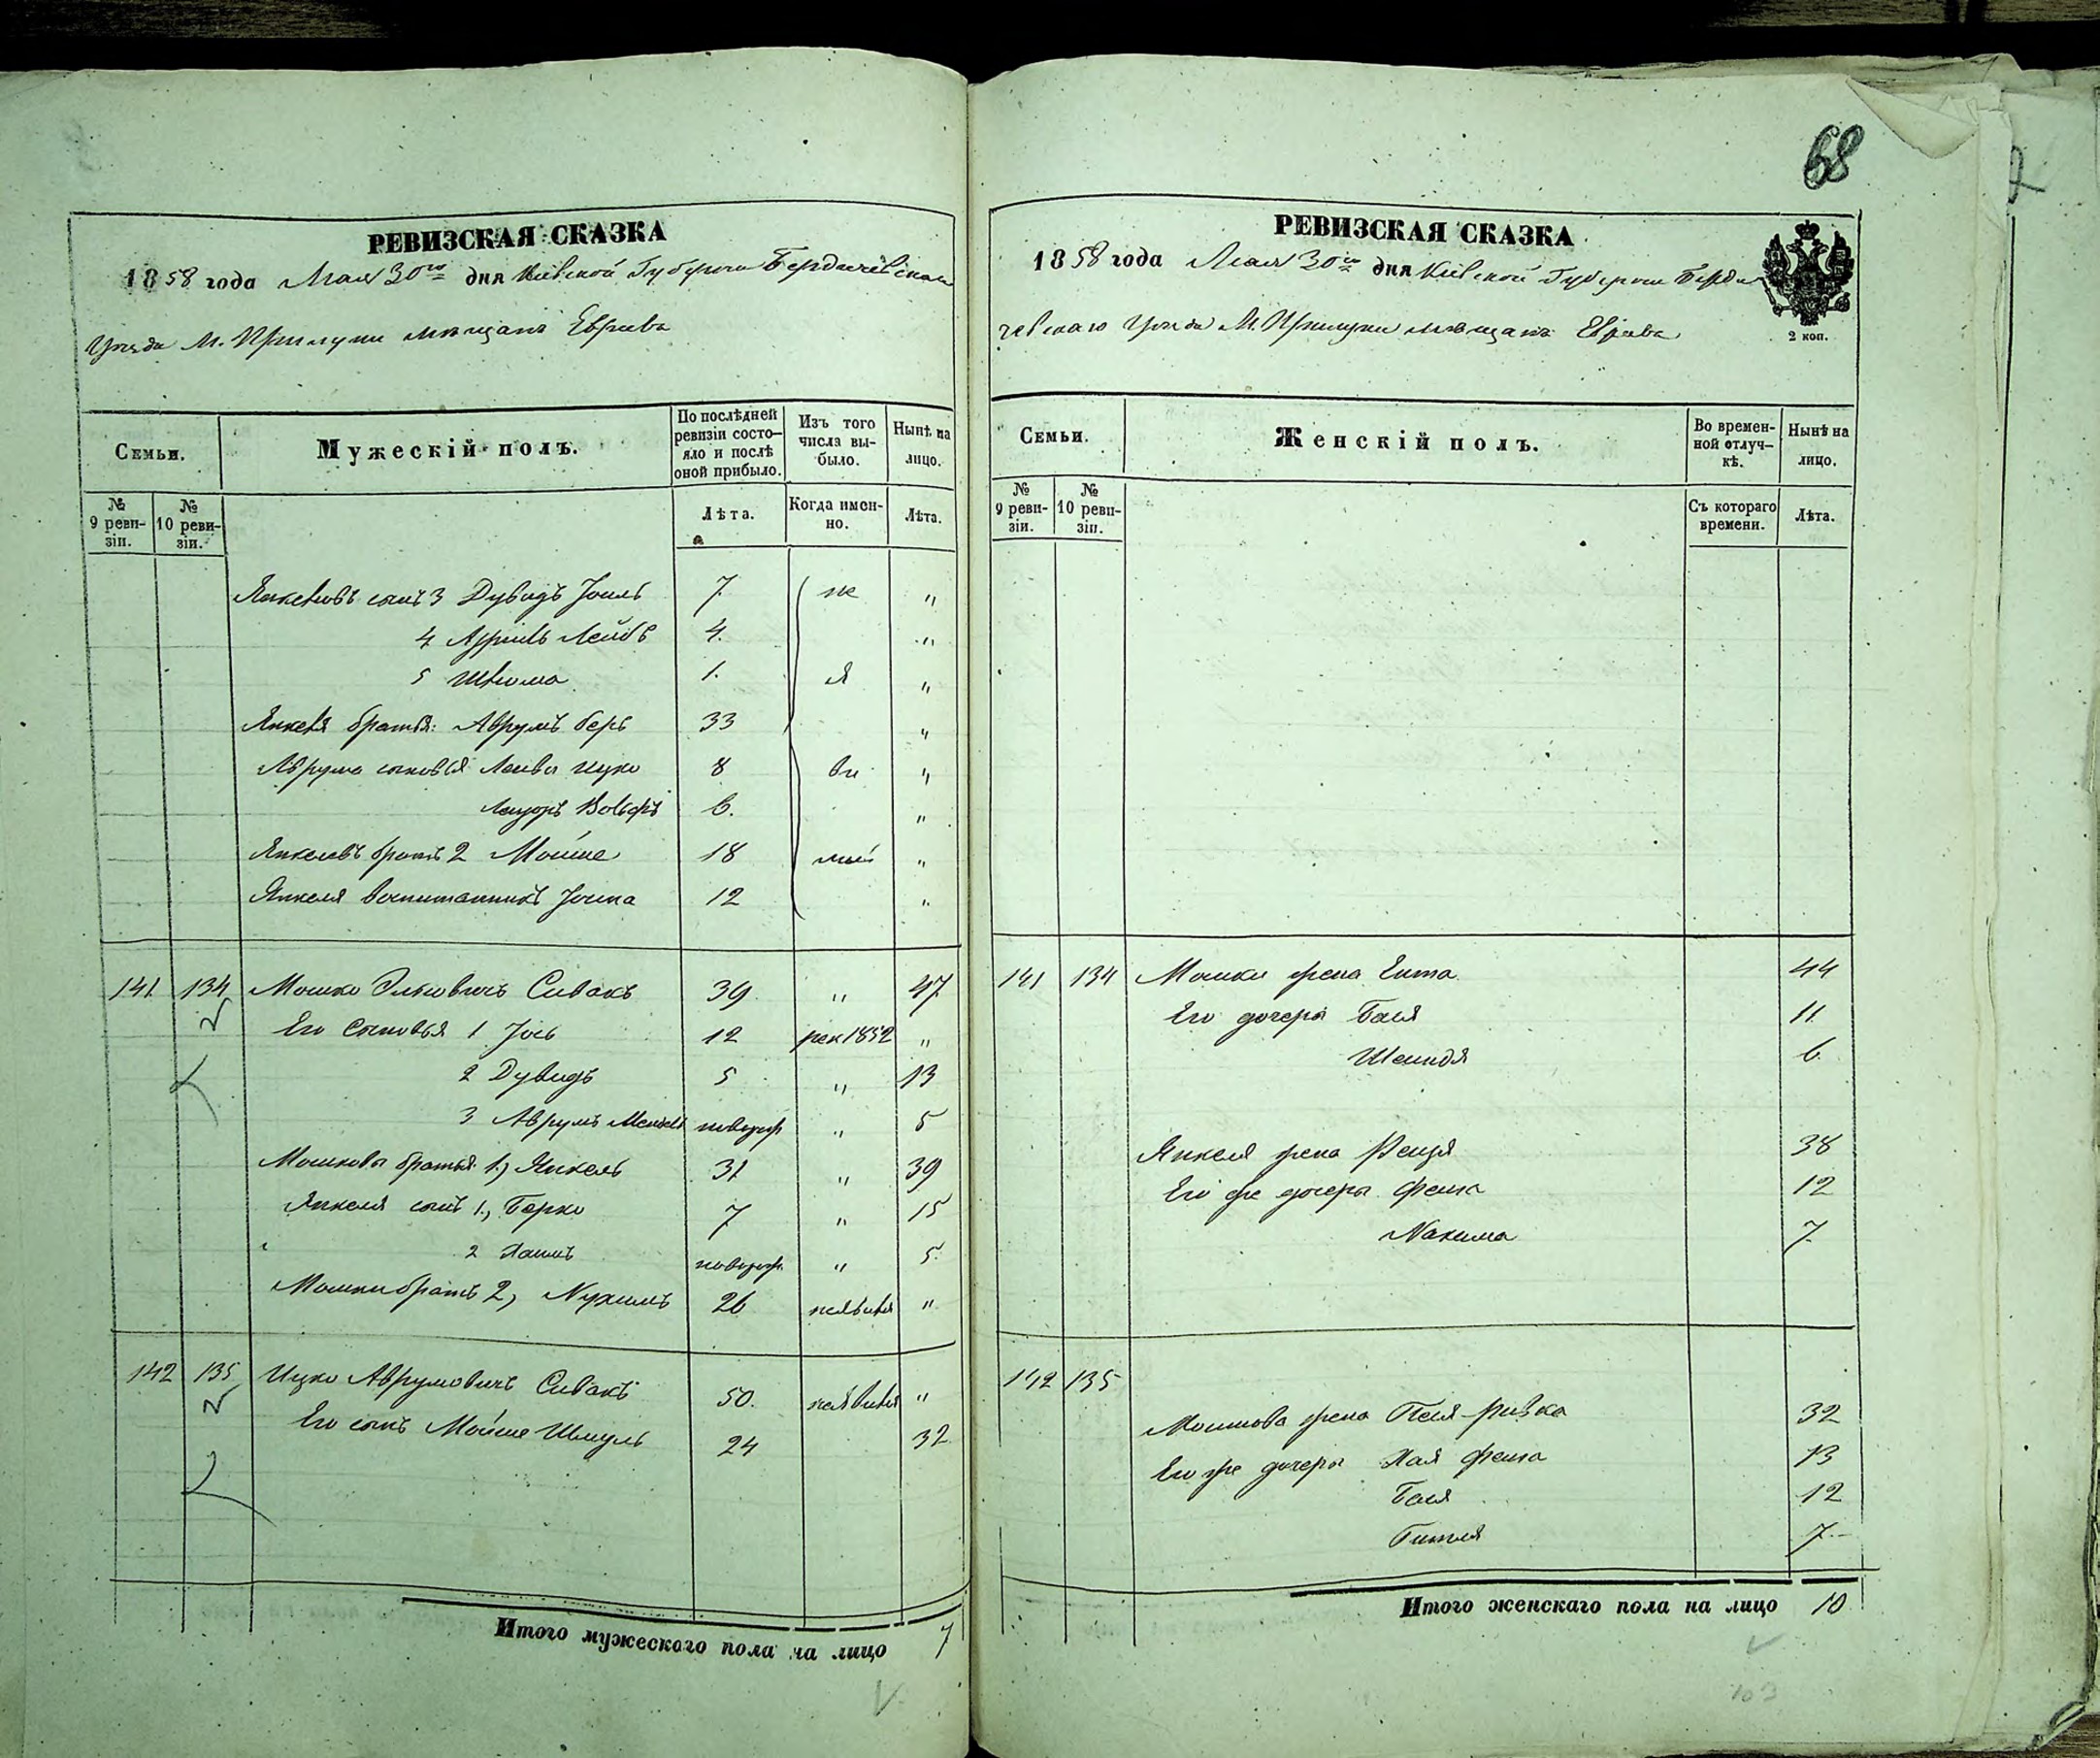 68
РЕВИЗСКАЯ СКАЗКА
1858 года Мая 30го дня Кіевской Губерніи Бердичевскаго
Уѣзда М. Прилуки мѣщанъ Евреевъ
Семьи.
Мужескій полъ.
По послѣдней ревизіи состояло и послѣ оной прибыло.
Изъ того числа выбыло.
Нынѣ на лицо.
№ 9 ревизіи.
№ 10 ревизіи.
Лѣта.
Когда именно.
Лѣта.
Янкелевъ сынъ 3 Дувидъ Іоиль 7 не "
4 Лейбъ 4. "
5 Шлиома 1. я "
Янкеля братья: Аврумъ беръ 33 "
Аврума сыновья Лейба ицко 8 ви "
Вольфъ 6. "
Янкелевъ братъ 2 Мойше 18 "
Янкеля воспитанникъ 12 "
141 134 Мошко Сивакъ 39 " 47
Его Сыновья 1 Іось 12 рек 1852 "
2 Дувидъ 5 " 13
3 Аврумъ Мендель новорож " 5
Мошковы братья 1., Янкель 31 " 39
Янкеля сынъ 1., Берко 7 " 15
2 Хаимъ новорож. " 5.
Мошки братъ 2, Нухимъ 26 неявився "
142 135 Ицко Аврумовичъ Сивакъ 50. неявився "
Его сынъ Мойше Шмуль 24 32
Итого мужескаго пола на лицо 7
РЕВИЗСКАЯ СКАЗКА
1858 года Мая 30го дня Кіевской Губерніи Берди
чевскаго Уѣзда М. Прилуки мѣщанъ Евреевъ
2 коп.
Семьи.
Женскій полъ.
Во временной отлучкѣ.
Нынѣ на лицо.
№ 9 ревизіи.
№ 10 ревизіи.
Съ котораго времени.
Лѣта.
141 134 Мошки жена Ента 44
Его дочери Бася 11.
Шейндя 6.
Янкеля жена 38
Его же дочери Фейга 12
Нахима 7.
142 135
Мошкова жена Песя-Ривка 32
Его же дочери Хая Фейга 13
Бася 12
Гитля 7.
Итого женскаго пола на лицо 10
103